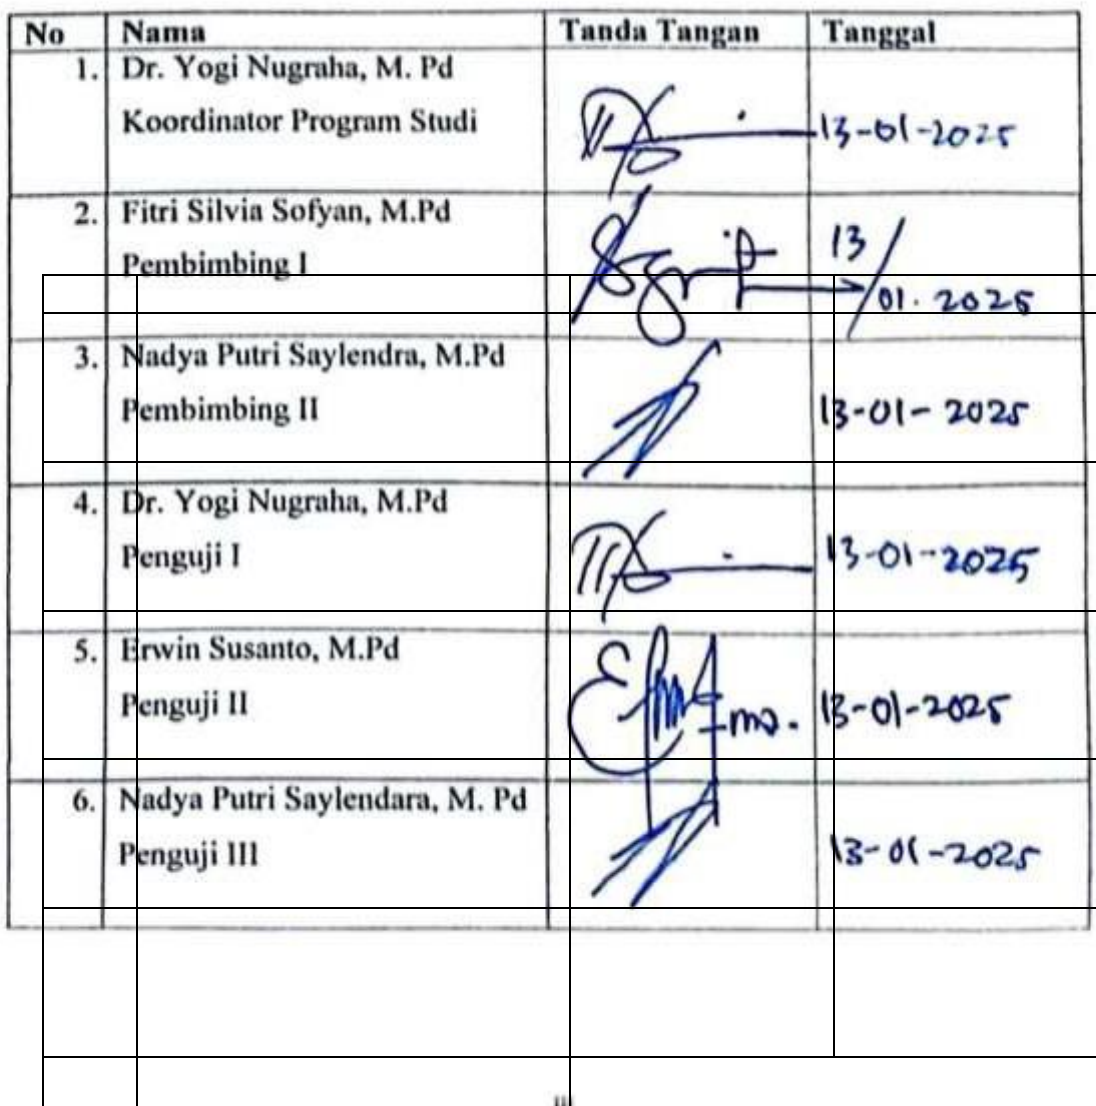 No Nama Tanda Tangan Tanggal
1. Dr. Yogi Nugraha, M. Pd
Koordinator Program Studi 13-01-2025
2. Fitri Silvia Sofyan, M.Pd
Pembimbing I 13/01.2025
3. Nadya Putri Saylendra, M.Pd
Pembimbing II 13-01-2025
4. Dr. Yogi Nugraha, M.Pd
Penguji I 13-01-2025
5. Erwin Susanto, M.Pd
Penguji II 13-01-2025
6. Nadya Putri Saylendara, M. Pd
Penguji III 13-01-2025
iii